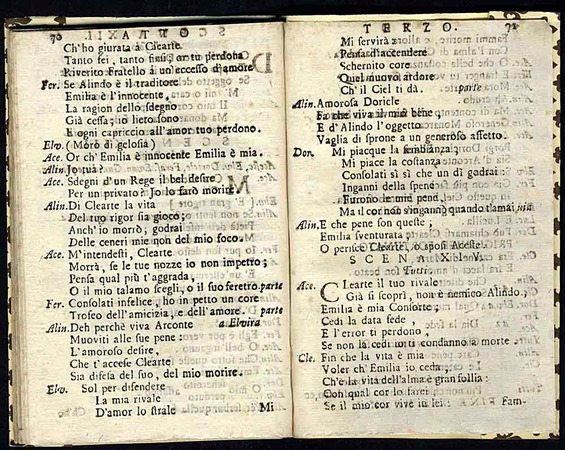 70
Ch'ho giurata à Clearte.
Tanto fei, tanto finsi, or tu perdona
Riverito Fratello à un'eccesso d'amore
Fer. Se Alindo è il traditore
Emilia è l'innocente,
La ragion dello sdegno
Già cessa; io lieto sono
E ogni capriccio all'amor tuo perdono.
Elv. (Moro di gelosia)
Ace. Or ch'Emilia è innocente Emilia è mia.
Alin. Jo tua?
Ace. Sdegni d'un Rege il bel desire
Per un privato? Jo lo farò morire
Alin. Di Clearte la vita
Del tuo rigor sia gioco;
Anch'io morirò; godrai
Delle ceneri mie non del mio foco.
Ace. M'intendesti, Clearte
Morrà, se le tue nozze io non impetro;
Pensa qual più t'aggrada,
O il mio talamo scegli, o il suo feretro. parte
Fer. Consolati infelice, ho in petto un core
Trofeo dell'amicizia, e dell'amore. parte
Alin. Deh perchè viva Arconte a Elvira
Muoviti alle sue pene:
L'amoroso desire,
Che t'accese Clearte
Sia difesa del suo, del mio morire.
Elv. Sol per difendere
La mia rivale
D'amor lo strale
Mi
TERZO. 71
Mi servirà
Pensa d'accendere
Schernito core
Quel nuovo ardore
Ch'il Ciel ti dà. parte
Alin. Amorosa Doricle
Fa che viva il mio bene
E d'Alindo l'oggetto
Vaglia di sprone a un generoso affetto.
Dor. Mi piacque la sembianza,
Mi piace la costanza
Consolati sì sì che un dì godrai
Inganni della spene
Furono le mie pene,
Ma il cor non s'ingannò quando t'amai
Alin. E che pene son queste;
Emilia sventurata
O perisce Clearte, o sposi Aceste.
SCENA XIV.
Tutti.
Ace. Clearte il tuo rivale
Già si scoprì, non è nemico Alindo;
Emilia è mia Consorte,
Cedi la data fede,
E l'error ti perdono,
Se non la cedi io ti condanno a morte
Cle. Fin che la vita è mia
Voler ch'Emilia io ceda,
Ch'è la vita dell'alma è gran follia:
Con qual cor lo farei
Se il mio cor vive in lei:
Fam-